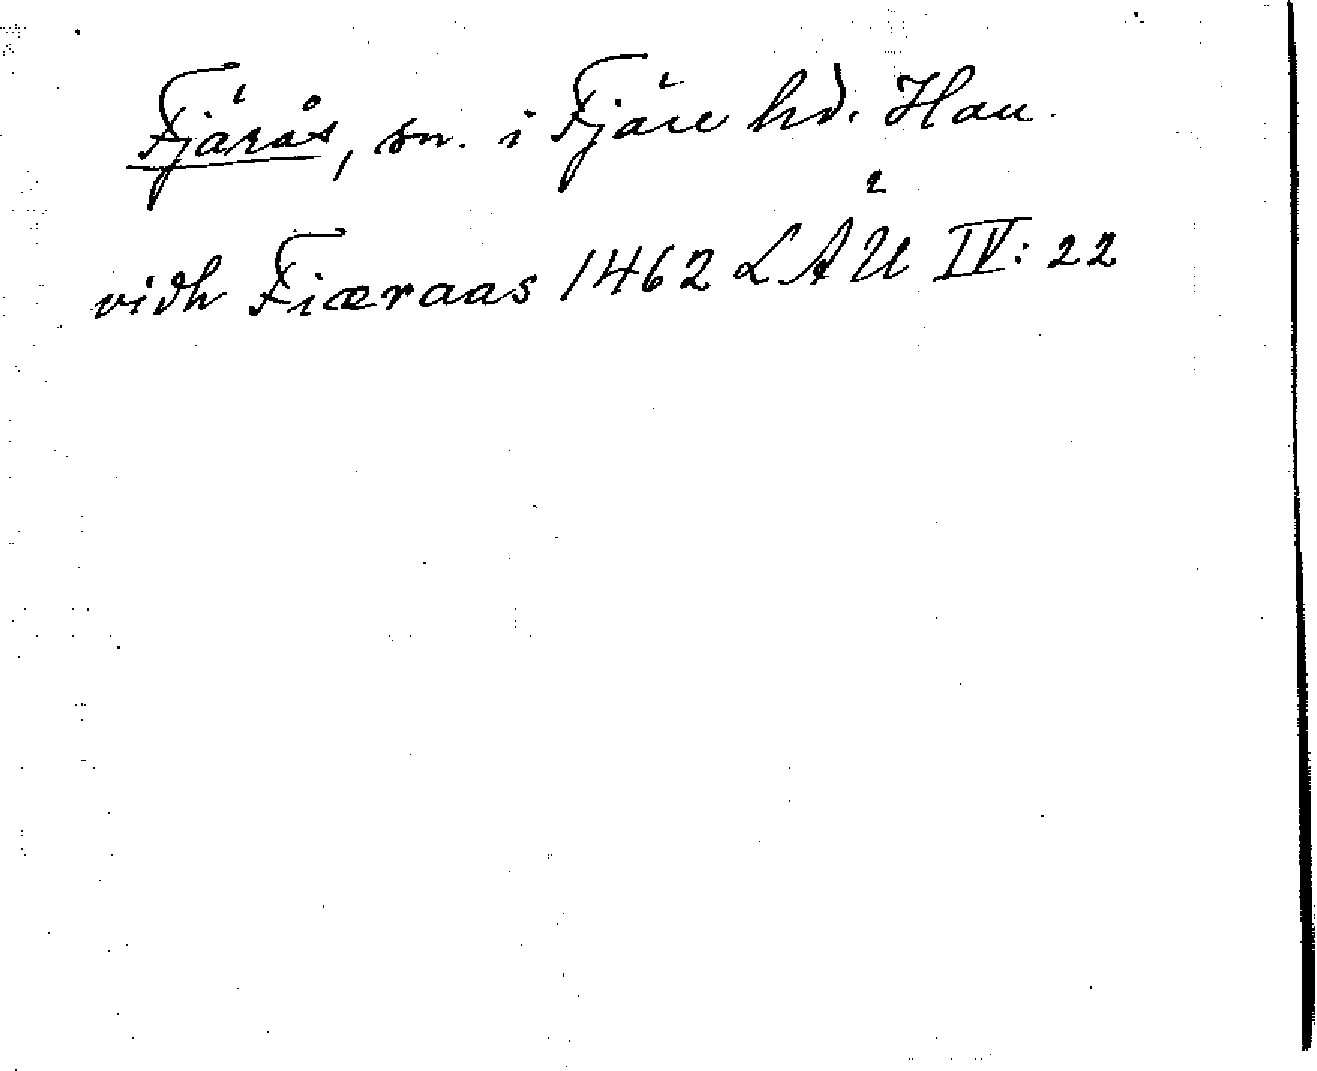 Fjärås, sn. i Fjäre hd. Hall.
vidh Fiæraas 1462 LÄU IV: 22